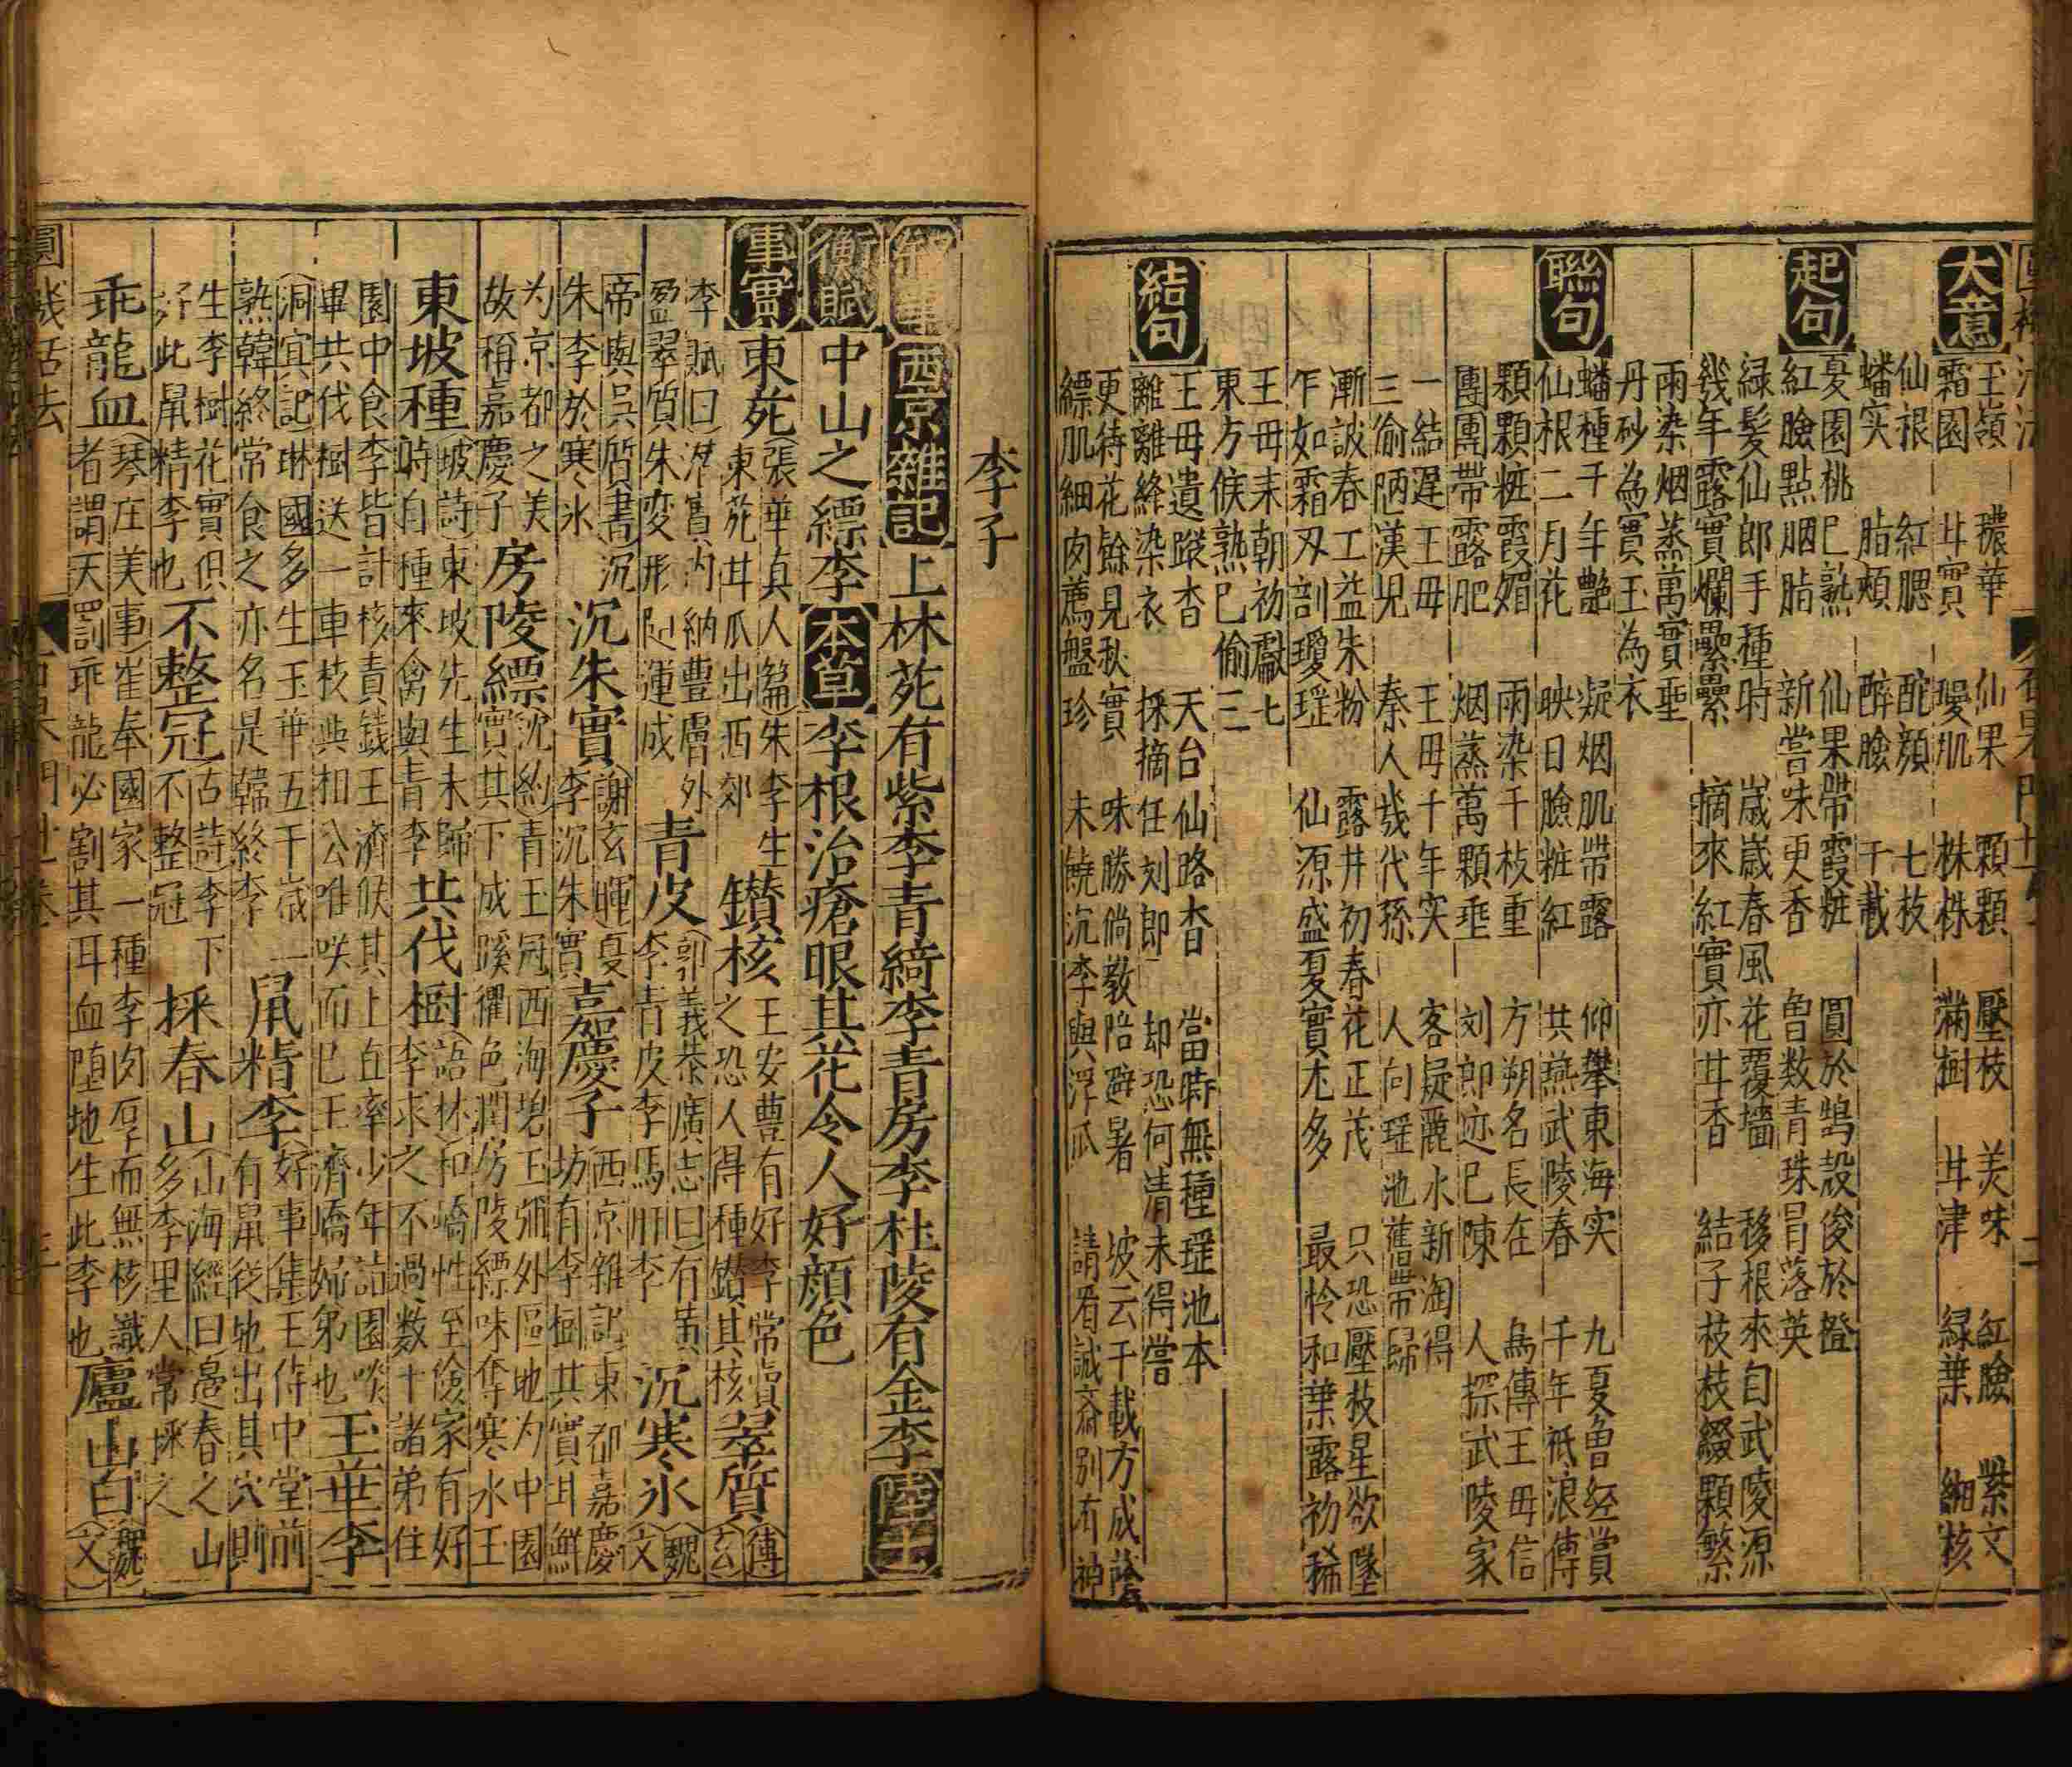 大意
玉嶺 穠華 仙果 顆顆 壓枝 美味 紅臉 紫文
霜園 甘實 瓊肌 株株 滿樹 甘津 緑葉 細核
仙根 紅腮 酡顔 七枝
蟠实 脂頰 醉臉 千載
起句
夏園桃已熟 仙果帶霞粧 圓於鵠殼俊於橙
紅臉點胭脂 新嘗味更香 曽数青珠冐落英
緑髪仙郎手種時 嵗嵗春風花覆墻 移根來自武陵源
幾年露實爛纍纍 摘來紅實亦甘香 結子枝枝綴顆繁
雨染烟蒸萬實埀
丹砂為實玉為衣
聯句
蟠種千年艶 凝烟肌帶露 仰攀東海实 九夏曽経賞
仙根二月花 映日臉粧紅 共燕武陵春 千年祗浪傳
顆顆粧霞媚 雨染千枝重 方朔名長在 為傳王母信
團團帶露肥 烟蒸萬顆埀 刘郎迹已陳 人探武陵家
一結遲王母 王母千年实 客疑麗水新淘得
三偷陋漢児 秦人幾代孫 人向瑶池舊帶歸
漸誠春工益朱粉 露井初春花正茂 只恐壓枝星欲墜
乍如霜刃剖瓊瑶 仙源盛夏實尤多 最怜和葉露初稀
王母来朝初獻七
東方候熟已偷三
結句
王母遺蹤杳 天台仙路杳 當時無種瑶池本
離離絳染衣 採摘任刘郎 却恐何清未得嘗
更待花餘見秋實 味勝倘教陪避暑 坡云千載方成蔭
縹肌細肉薦盤珍 未饒沉李與浮瓜 請看誠斎別有神
李子
西京雜記 上林苑有紫李青綺李青房李杜陵有金李 陸士
衡賦 中山之縹李 本草 李根治瘡眼其花令人好顔色
事實 東苑 (張華真人篇)朱李生 鑚核 王安豊有好李常賣 翠質 (傅
東苑甘瓜出西郊 之恐人得種鑚其核 玄
李賦曰)潜實内納豊膚外 青皮 (郭義恭廣志曰)有黄 沉寒氷 (魏
盈翠質朱変形随運成 李青皮李馬肝李 文
帝與呉質書)沉 沉朱實 (謝玄暉)夏 嘉慶子 西京雜記東都嘉慶
朱李於寒氷 李沉朱實 坊有李樹其實甘鮮
为京都之美 房陵縹 (沈約)青玉冠西海碧玉彌外區地为中園
故稱嘉慶子 實其下成蹊衢色潤房陵縹味奪寒水玉
東坡種 (坡詩)東坡先生未歸 共伐樹 (語林)和嶠性至儉家有好
時自種來禽與青李 李求之不過数十諸弟住
園中食李皆計核責錢王濟候其上直率少年詣園啖 玉華李
畢共伐樹送一車枝與和公唯咲而已王濟嶠婦弟也
(洞宜記)琳國多生玉華五千歳一 鼠精李 (好事集)王侍中堂前
熟韓終常食之亦名是韓終李 有鼠従地出其穴則
生李樹花實俱 不整冠 (古詩)李下 採春山 (山海經曰)邊春之山
好此鼠精李也 不整冠 多李里人常採之
乖龍血 (琴庄美事)崔奉國家一種李肉厚而無核識 廬山白 (魏
者謂天罰乖龍必割其耳血堕地生此李也 文